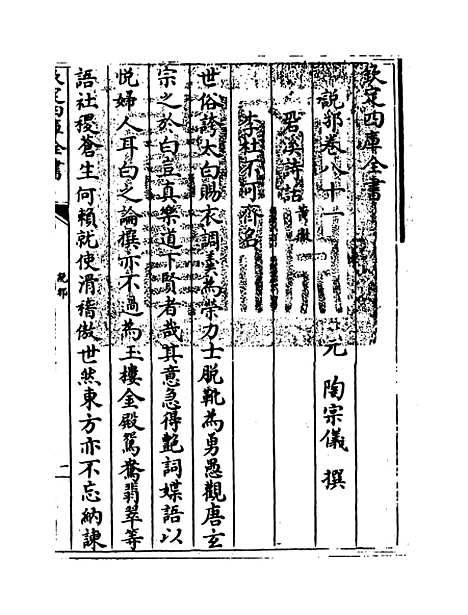 欽定四庫全書
說郛卷八十一
元 陶宗儀 撰
䂬溪詩話 黃徹
李杜不可齊名
世俗誇太白賜衣調羹為榮力士脫靴為勇愚觀唐玄
宗之於白豈真樂道下賢者哉其意急得艶詞媟語以
悅婦人耳白之論撰亦不過為玉樓金殿鴛鴦翡翠等
語社稷蒼生何賴就使滑稽傲世然東方亦不忘納諫
欽定四庫全書
說郛
二